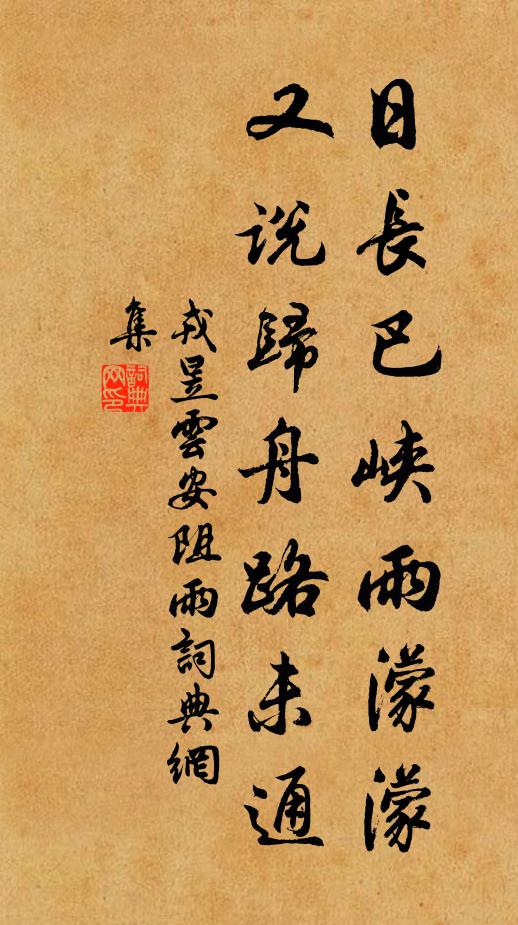 日長巴峽雨濛濛
又説歸舟路未通
戎昱雲安阻雨詞典網
集
詞典
網印